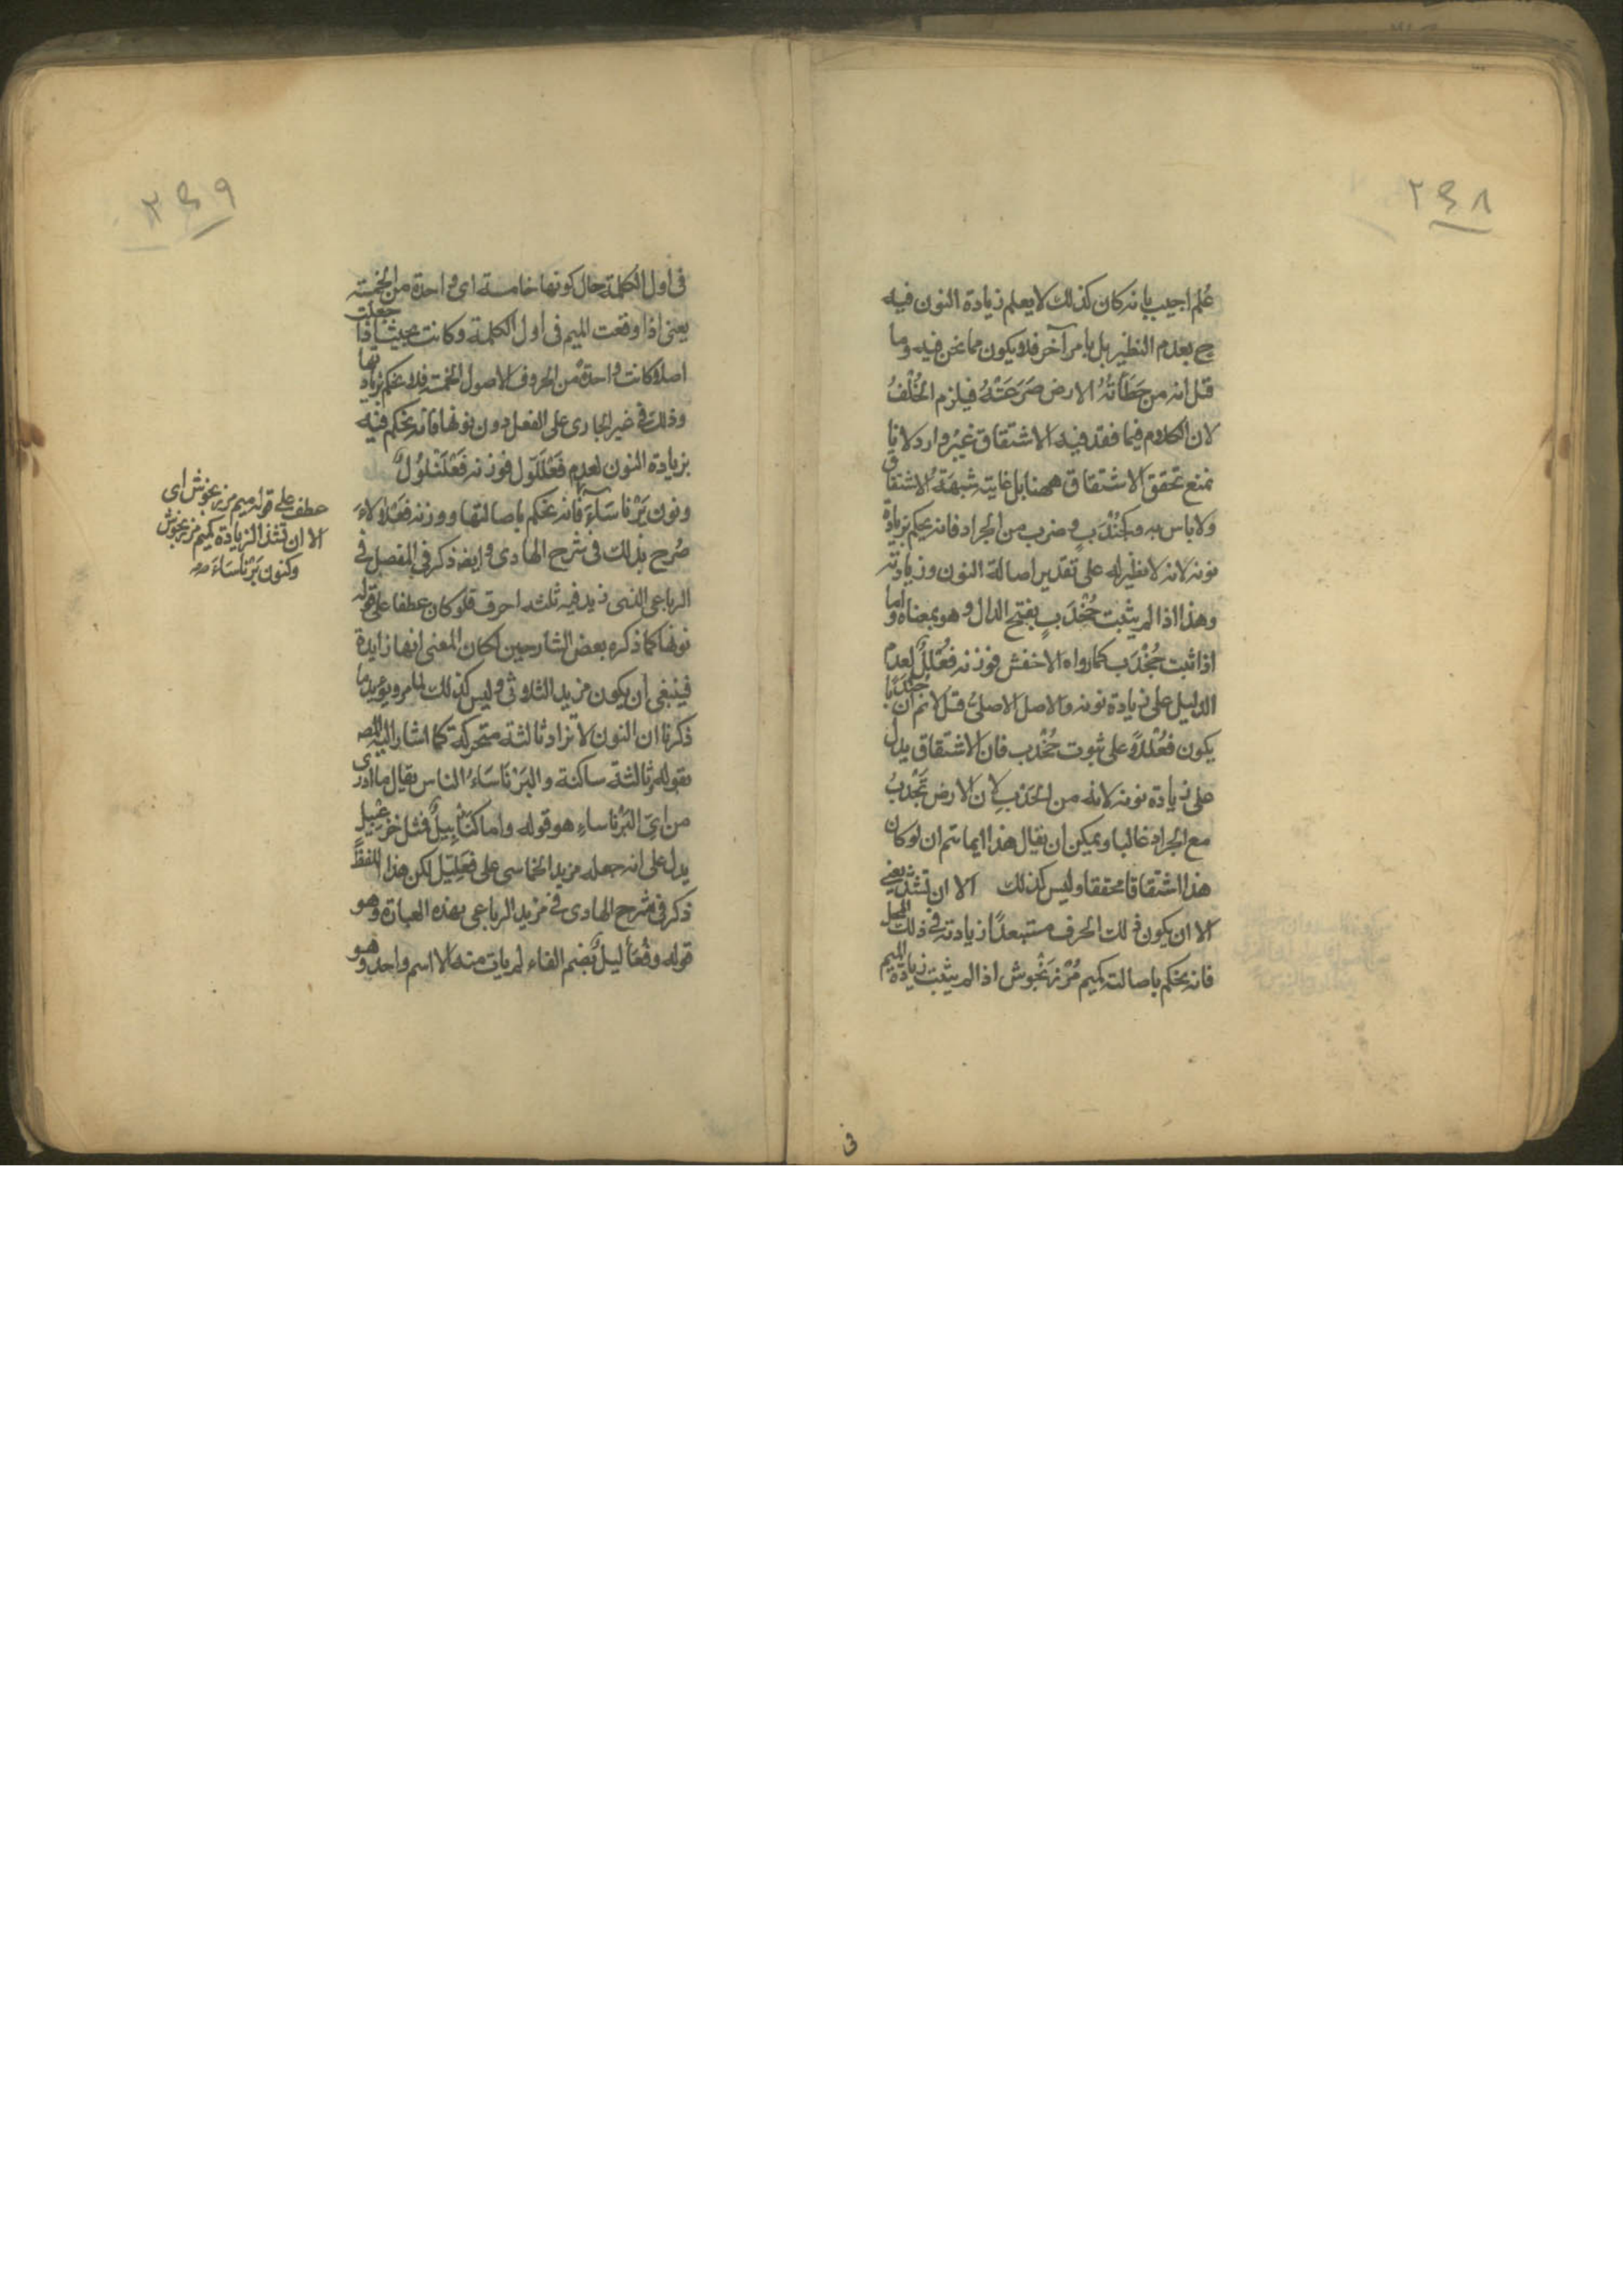 ٢٤٨
عُلم اجيب بانه كان كذلك لا يعلم زيادة النون فيه
ح بعدم النظير بل بامر آخر فلا يكون مما نحن فيه وما
قيل انه من حَطَأَتْهُ الارض صَرَعَتْهُ فيلزم الخُلْفُ
لان الكلام فيما فقد فيه الاشتقاق غير وارد لانا
نمنع تحقق الاشتقاق ههنا بل غايته شبهةُ الاشتقاق
ولا باس به وكجُنْدَبٍ وضرب من الجراد فانه يحكم بزيادة
نونه لانه لا نظير له على تقدير اصالة النون وزيادته
وهذا اذا لم يثبت جُخْدَبٍ بفتح الدال وهو بمعناه واما
اذا ثبت جُخْدَب كما رواه الاخفش فوزنه فُعْلَلٌ لعدم
الدليل على زيادة نونه والاصل الاصلىُ قيل لا نم ان جندبا
يكون فُعْلَلًا على ثبوت جُخْدَب فان الاشتقاق يدل
على زيادة نونه لانه من الجَدْبِ لان الارض تَجْدُبُ
مع الجراد غالبا ويمكن ان يقال هذا انما يتم ان لو كان
هذا اشتقاقا محققا وليس كذلك الا ان تشذ يعنى
الا ان يكون ذلك الحرف مستبعدًا زيادته فى ذلك المحل
فانه يحكم باصالته كميم مُرْزَنْجُوش اذا لم يثبت زيادة الميم
فى
٢٤٩
فى اول الكلمة حال كونها خامسة اى واحدة من الخمسة
يعنى اذا وقعت الميم فى اول الكلمة وكانت بحيث اذا جعلت
اصلا كانت واحدة من الحروف الاصول الخمسة فلا يحكم بزيادتها
وذلك فى غير الجارى على الفعل دون نونها فانه يحكم فيه
بزيادة النون لعدم فَعْلَلّول فوزنه فَعْلَنْلُوُلٌ
ونون بَرْناسَآءَ فانه يحكم باصالتها ووزنه فَعْلَالاءَ
صُرح بذلك فى شرح الهادى وايضا ذكر فى المفصل فى
الرباعى الذى زيد فيه ثلثه احرف فلو كان عطفا على قوله
نونها كما ذكره بعض الشارحين لكان المعنى انها زايدة
فينبغى ان يكون مزيد الثلاثى وليس كذلك لما مر ويؤيد ما
ذكرنا ان النون لا تزاد ثالثة متحركة كما اشار اليه المص
بقوله وثالثة ساكنة والبَرْنَاسَاءُ الناس يقال ما ادرى
من اىّ البَرْناساءِ هو قوله واما كُنَابِيلٌ فمثل خزعبيل
يدل على انه جعله مزيد الخماسى على فُعَلِّيل لكن هذا اللفظ
ذكر فى شرح الهادى فى مزيد الرباعى بهذه العبارة وهو
قوله وفُعَأْليلٌ بضم الفاء لم يات منه الا اسم واحد وهو
عطف على قوله ميم مرزنجوش اى
الا ان تشذ الزيادة كميم مرزنجوش
وكنون بَرْناسَاءَ